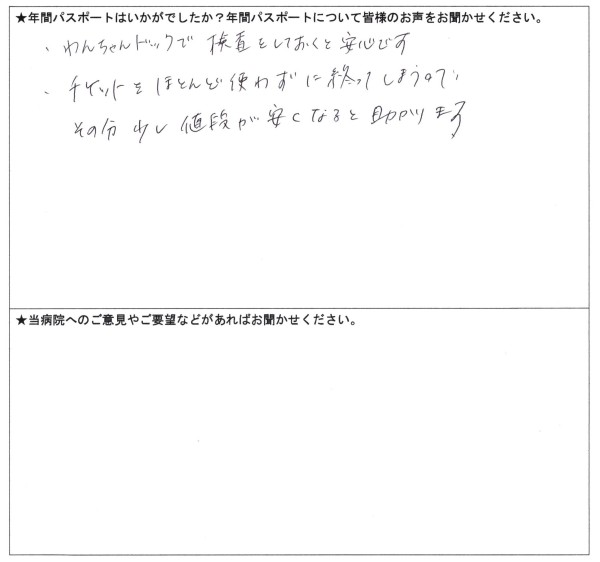 ★年間パスポートはいかがでしたか？年間パスポートについて皆様のお声をお聞かせください。
・わんちゃんドックで 検査をしておくと安心です
・チケットをほとんど使わずに終ってしまうので、
その分少し値段が安くなると助かります
★当病院へのご意見やご要望などがあればお聞かせください。